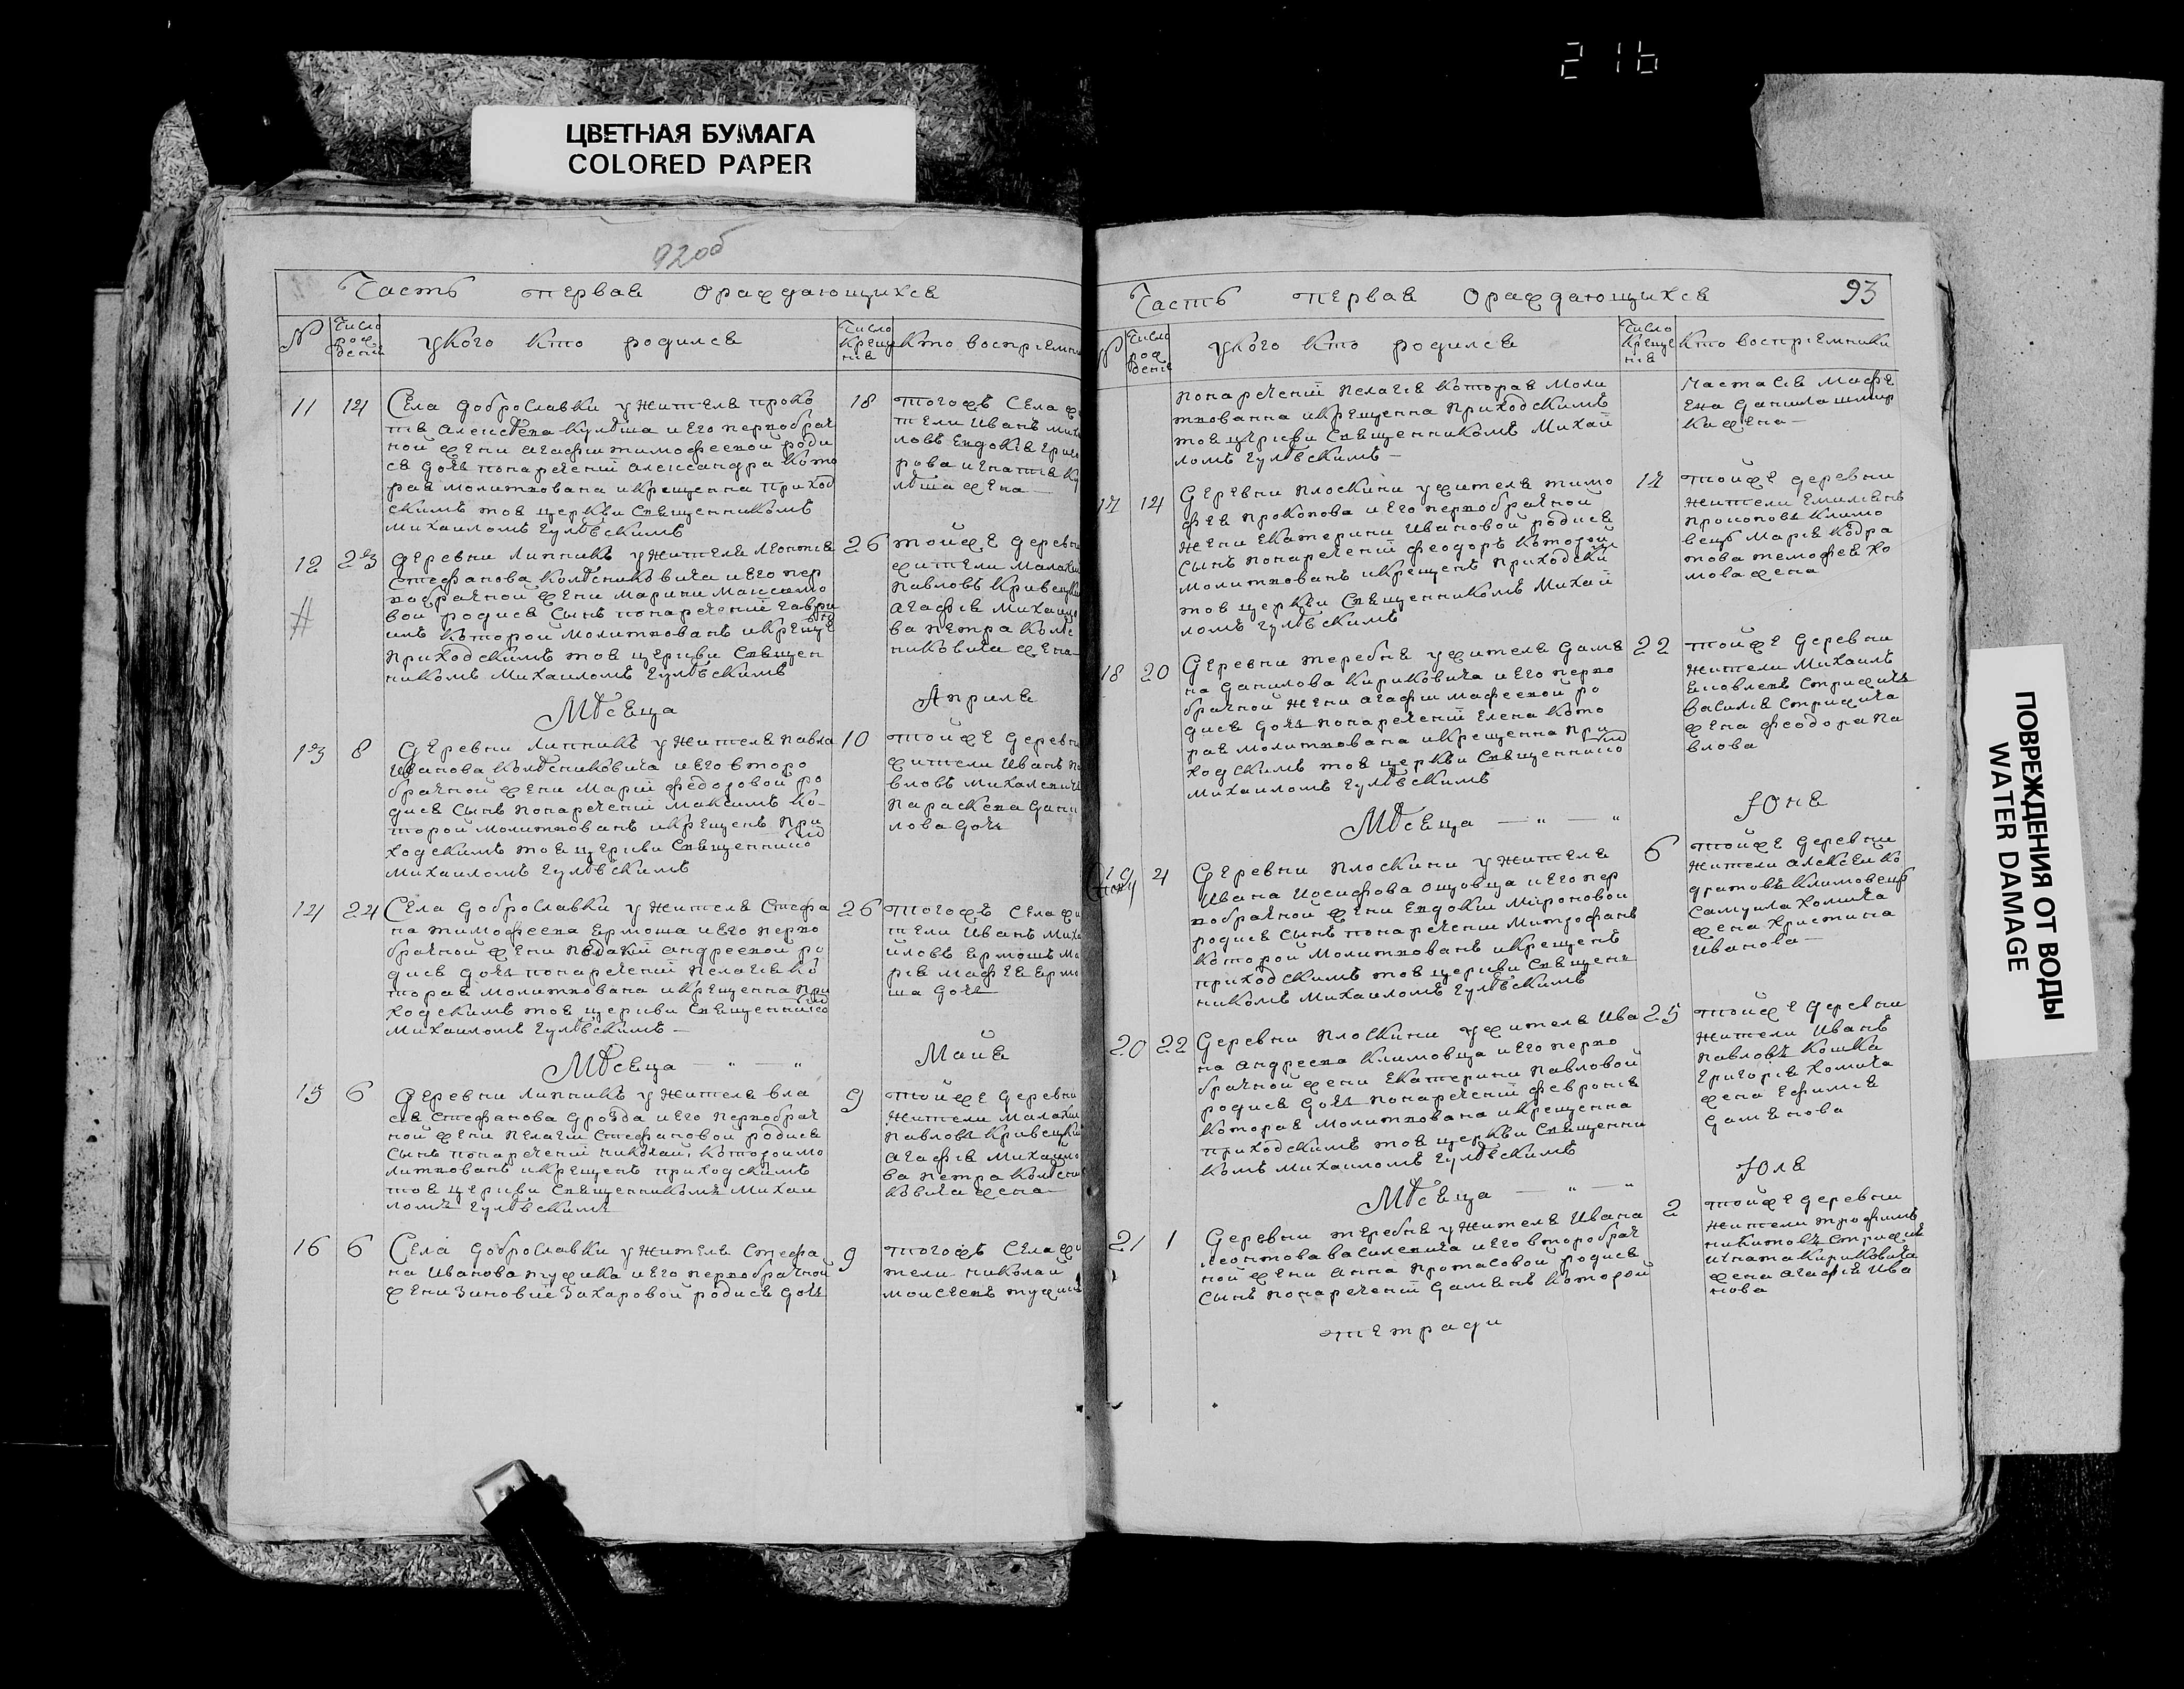 216
ЦВЕТНАЯ БУМАГА
COLORED PAPER
92об
Часть первая ораждающихся
№
Число рождения
у кого кто родился
Число крещения
кто восприемни
11 14 Села Доброславки у жителя Проко
18
того жъ села жи
тели Иванъ Миха
и его первобрач
ной жени Агафии Тимофеевой роди
ся дочь понаречений Александра кото
рая молитвована и крещенна приход
скимъ тоя церкви священникомъ
Михаиломъ Гулѣвскимъ
12 23 Деревни Липникъ у жителя Леонтия
Стефанова Колѣсниковича и его пер
вобрачной жени Марини Максимо
вой родися сынъ понаречений Гаври
илъ которой молитвованъ и крещенъ
приходскимъ тоя церкви священ
никомъ Михаиломъ Гулѣвскимъ
26
той же деревни
жители Малахи
Павловъ Кривецки
Агафия Михайло
ва Петра Колѣс
никовича жена
Мѣсяца
Априля
13 8 Деревни Липникъ у жителя Павла
Иванова Колѣсниковича и его второ
брачной жени Марии Федоровой ро
дися сынъ понаречений Максимъ ко-
торой молитвованъ и крещенъ при
ходскимъ тоя церкви священнико
Михаиломъ Гулѣвскимъ
10
той же деревни
жители Иванъ Па
вловъ Михалевичъ
Параскева Дани
лова дочь
14 24 Села Доброславки у жителя Стефа
на Тимофеева Ярмоша и его перво
брачной жени Андреевой ро
дися дочь понаречений Пелагия ко
торая молитвована и крещенна при
ходскимъ тоя церкви священнико
Михаиломъ Гулѣвскимъ —
26
того жъ села жи
тели Иванъ Миха
йловъ Ярмошъ Ма
рия Мафея Ярмо
ша дочь
Мѣсяца — " — "
Майя
15 6 Деревни Липникъ у жителя Вла
ся Стефанова Дрозда и его первобрач
ной жени Пелагии Стефановой родися
сынъ понаречений Николай, которой мо
литвованъ и крещенъ приходскимъ
тоя церкви священникомъ Михаи
ломъ Гулѣвскимъ
9
той же деревни
жители Малахи
Павловъ Кривецки
Агафия Михайло
ва Петра Колѣсни
ковича жена
16 6 Села Доброславки у жителя Стефа
на Иванова и его первобрачной
жени Зиновие Захаровой родися дочь
9
того жъ села жи
тели Николай
Моисеевъ
Часть первая ораждающихся
93
№
Число рождения
у кого кто родился
Число крещения
кто восприемники
понаречений Пелагия которая моли
твованна и крещенна приходскимъ
тоя церкви священникомъ Михаи
ломъ Гулѣвскимъ —
Мафе
ева Данила
жена —
17 14 Деревни Плоскини у жителя Тимо
фея Прокопова и его первобрачной
жени Екатерини Ивановой родися
сынъ понаречений Феодоръ которой
молитвованъ и крещенъ приходски
тоя церкви священникомъ Михаи
ломъ Гулѣвскимъ
17
той же деревни
жители Емилиянъ
Прокоповъ Климо
вецъ Мария Кодра
това Тимофея Хо
мова жена
18 20 Деревни Теребня у жителя Дамя
на Данилова Кириковича и его перво
брачной жени Агафии Мафеевой ро
дися дочь понаречений Елена кото
рая молитвована и крещенна при
ходскимъ тоя церкви священнико
Михаиломъ Гулѣвскимъ
22
той же деревни
жители Михаилъ
Яковлевъ Стрижичъ
Василия Стрижича
жена Феодора Па
влова
Мѣсяца — " — "
Юня
19 4 Деревни Плоскини у жителя
Ивана Иосифова и его пер
вобрачной жени Евдокии Мироновой
родися сынъ понаречении Митрофанъ
которой молитвованъ и крещенъ
приходскимъ тоя церкви священ
никомъ Михаиломъ Гулѣвскимъ
6
той же деревни
жители Алексей Ко
дратовъ Климовецъ
Самуила Хомича
жена Христина
Иванова —
20 22 Деревни Плоскини у жителя Ива
на Андреева Климовца и его перво
брачной жени Екатерини Павловой
родися дочь понаречений Феврония
которая молитвована и крещенна
приходскимъ тоя церкви священни
комъ Михаиломъ Гулѣвскимъ
25
той же деревни
жители Иванъ
Павловъ Кошка
Григория Хомича
жена Ефимия
Дамянова
Мѣсяца — " — "
Юля
21 1 Деревни Теребня у жителя Ивана
Леонтова Василевича и его второбрач
ной жени Анна Протасовой родися
сынъ понаречений Дамянъ которой
2
той же деревни
жители Трофимъ
Никитовъ Стрижич
Игната Кириковича
жена Агафия Ива
нова
тетради
ПОВРЕЖДЕНИЯ ОТ ВОДЫ
WATER DAMAGE